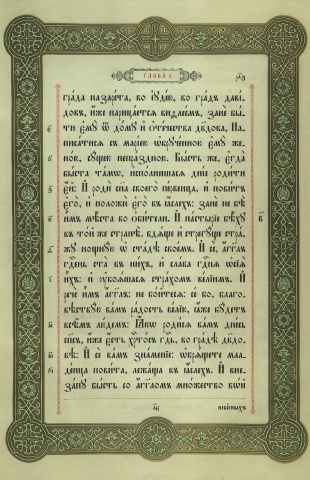 ГЛАВА в҃
града назарета, во іудею, во градъ даві-
довъ, иже нарицаетсѧ виѳлеемъ, зане бы-
ти ему ѿ дому и отечества дв҃дова. На-
писатисѧ съ маріею ѡбрученною ему же-
ною, сущею непраздною. Бысть же, егда
быста тамѡ, исполнишасѧ дніе родити
ей: И роди сн҃а своего первенца, и повитъ
его, и положи его въ ꙗслехъ: зане не бѣ
имъ мѣста во обители. И пастыріе бѣху
въ тойже странѣ, бдѧще и стрегуще стра-
жу нощную ѡ стадѣ своемъ. И се, агг҃лъ
гд҃ень ста въ нихъ, и слава гд҃нѧ ѡсіѧ
ихъ: и убоѧшасѧ страхомъ веліимъ. И
рече имъ агг҃лъ: не бойтесѧ: се бо, благо-
вѣствую вамъ радость велію, ꙗже будетъ
всѣмъ людемъ: Ꙗкѡ родисѧ вамъ днесь
сп҃съ, иже есть хр҃тосъ гд҃ь, во градѣ дв҃до-
вѣ: И се вамъ знаменіе: ѡбрѧщете мла-
денца повита, лежаща въ ꙗслехъ. И вне-
запу бысть со агг҃ломъ множество вѡи
небесныхъ